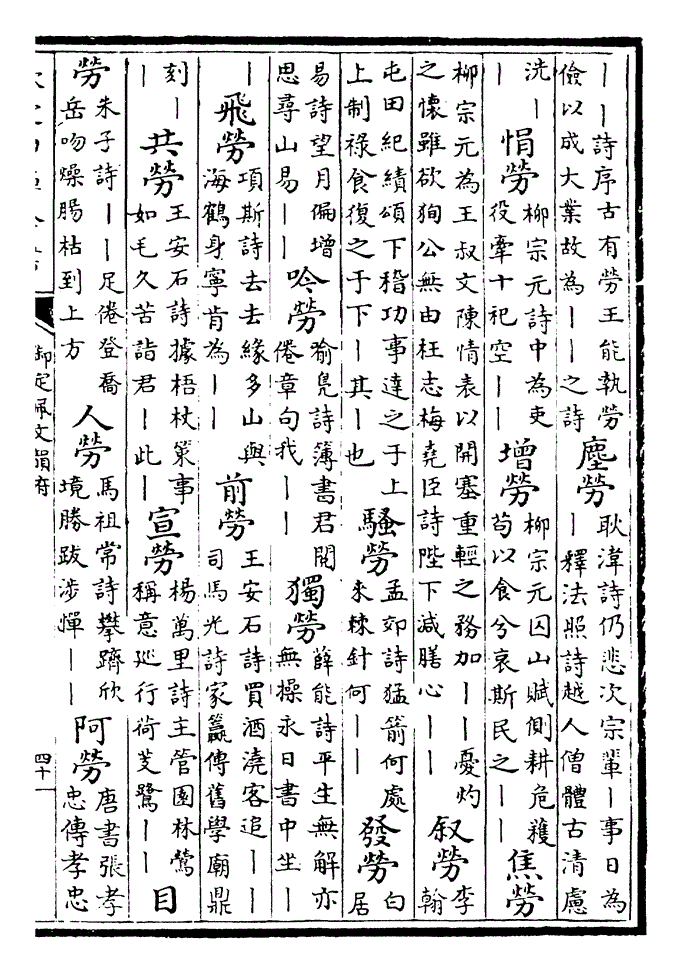 ｜｜詩序古有勞王能執勞
儉以成大業故為｜｜之詩
塵勞
耿湋詩仍悲次宗輩｜事日為
｜釋法照詩越人僧體古清慮
洗｜
｜
悁勞
柳宗元詩中為吏
役牽十祀空｜｜
增勞
柳宗元囚山賦側耕危穫
苟以食兮哀斯民之｜｜
焦勞
柳宗元為王叔文陳情表以開塞重輕之務加｜｜憂灼
之懷雖欲狥公無由枉志梅堯臣詩陛下減膳心｜｜｜
敘勞
李
翰
屯田紀績頌下稽功事達之于上
上制祿食復之于下｜其｜也
騷勞
孟郊詩猛箭何處
來棘針何｜｜
發勞
白
居
易詩望月偏增
思尋山易｜｜
吟勞
喻鳧詩簿書君閱
倦章句我｜｜
獨勞
薛能詩平生無解亦
無操永日書中坐｜｜
｜
飛勞
項斯詩去去緣多山與
海鶴身寧肯為｜｜
前勞
王安石詩買酒澆客追｜｜
司馬光詩家籯傳舊學廟鼎
刻｜
｜
共勞
王安石詩據梧杖策事
如毛久苦詣君｜此｜
宣勞
楊萬里詩主管園林鶯
稱意巡行荷芰鷺｜｜
目
勞
朱子詩｜｜足倦登喬
岳吻燥腸枯到上方
人勞
馬祖常詩攀躋欣
境勝跋涉憚｜｜
阿勞
唐書張孝
忠傳孝忠
御定佩文韻府
四十一